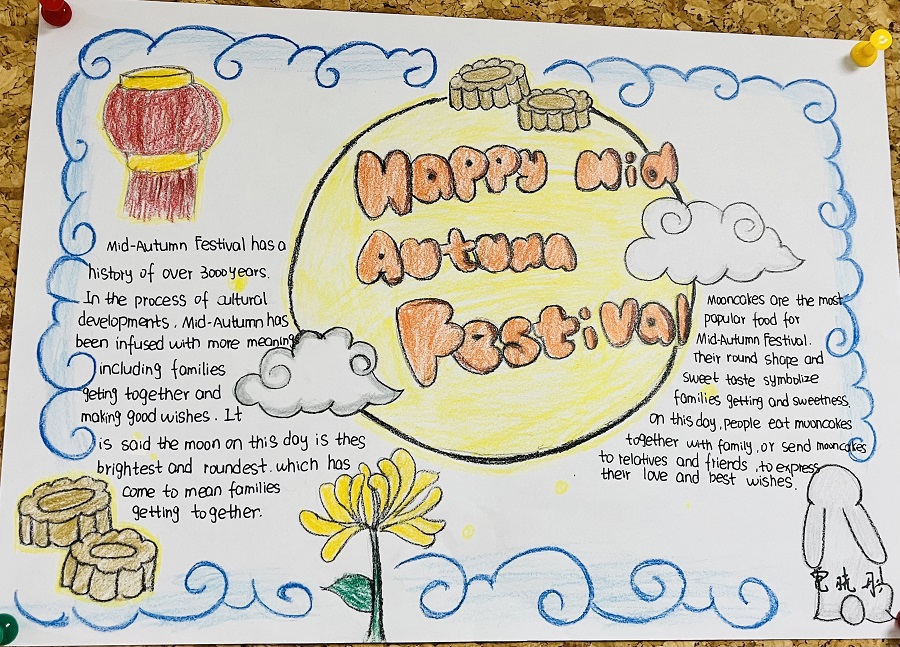 Happy Mid
Autumn
Festival
Mid-Autumn Festival has a
history of over 3000 years.
In the process of cultural
developments, Mid-Autumn has
been infused with more meaning
including families
geting together and
making good wishes. It
is said the moon on this day is thes
brightest and roundest. which has
come to mean families
getting together.
Mooncakes are the most
popular food for
Mid-Autumn Festival.
Their round shape and
sweet taste symbolize
families getting and sweetness.
on this day, people eat mooncakes
together with family, or send mooncakes
to relatives and friends, to express
their love and best wishes.